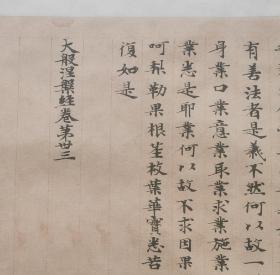 有善法者是義不然何以故一
身業口業意業取業求業施業
業悉是耶業何以故不求因果
呵梨勒果根莖枝葉華實悉苦
復如是
大般涅槃經卷第卅三